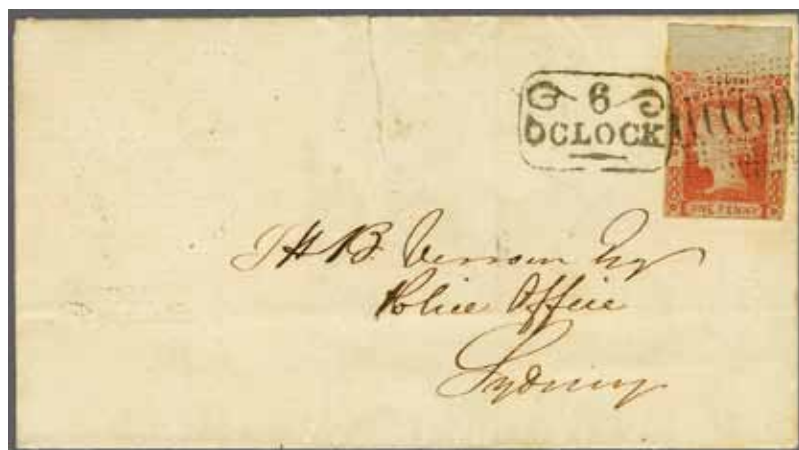 6
OCLOCK
ONE PENNY
Esq
Police Office
Sydney